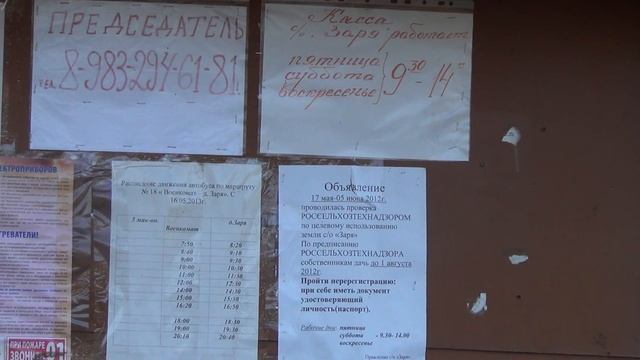 ПРЕДСЕДАТЕЛЬ
тел. 8-983-294-61-81
Касса
с/о. Заря работает
пятница
суббота
воскресенье
9 30 - 14 00
Расписание движения автобуса по маршруту
№ 18 « Военкомат – д. Заря». С
16.05.2013г.
Военкомат
д.Заря
7:50 8:20
8:40 9:10
9:00 9:30
10:00 10:30
11:00 11:30
12:00 12:30
14:00 14:30
15:00 15:30
16:20 16:50
18:00 18:30
19:00 19:30
20:10 20:40
Объявление
17 мая-05 июня 2012г.
проводилась проверка
РОССЕЛЬХОЗТЕХНАДЗОРОМ
по целевому использованию
земли с/о «Заря»
По предписанию
РОССЕЛЬХОЗТЕХНАДЗОРА
собственникам дач до 1 августа
2012г
Пройти перерегистрацию:
при себе иметь документ
удостоверяющий
личность(паспорт).
Рабочие дни: пятница
суббота - 9.30- 14.00
воскресенье
Правление с/о «Заря»
ЕКТРОПРИБОРОВ
РЕВАТЕЛИ!
ПРИ ПОЖАРЕ
ЗВОНИ 01